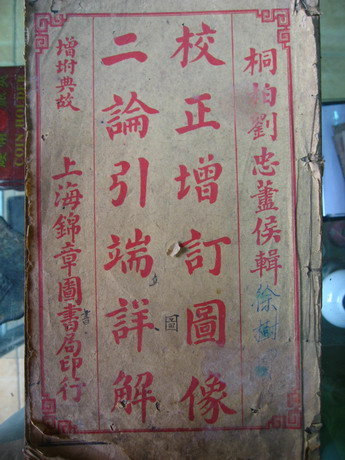 桐柏劉忠藎侯輯
徐樹
校正增訂圖像
二論引端詳解
圖
增坿典故
上海錦章圖書局印行
書